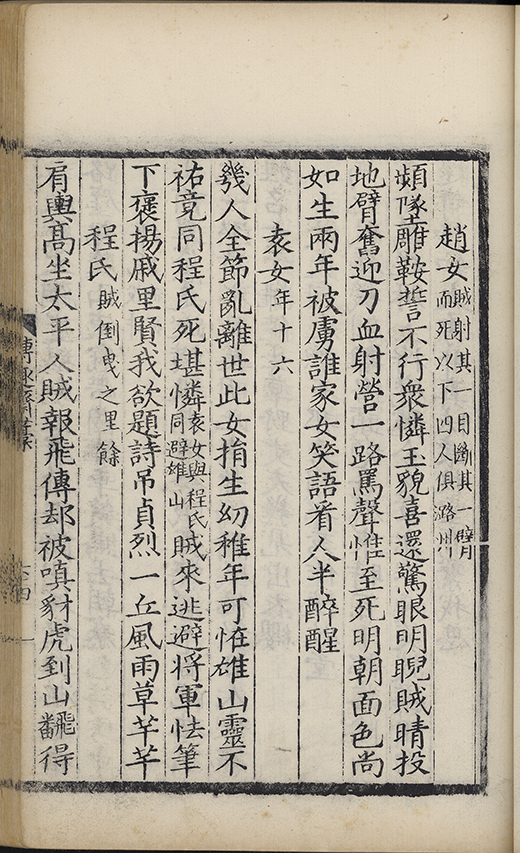 趙女賊射其一目斷其一臂
而死以下四人俱潞州
頻墜雕鞍誓不行衆憐玉貌喜還驚眼明睨賊睛投
地臂奮迎刀血射營一路罵聲惟至死明朝面色尚
如生兩年被虜誰家女笑語看人半醉醒
袁女年十六
幾人全節亂離世此女捐生幼稚年可恠雄山靈不
祐竟同程氏死堪憐袁女與程氏
同避雄山賊來逃避將軍怯筆
下褒揚戚里賢我欲題詩吊貞烈一丘風雨草芊芊
程氏賊倒曳之里餘
肩輿高坐太平人賊報飛傳却被嗔豺虎到山飜得